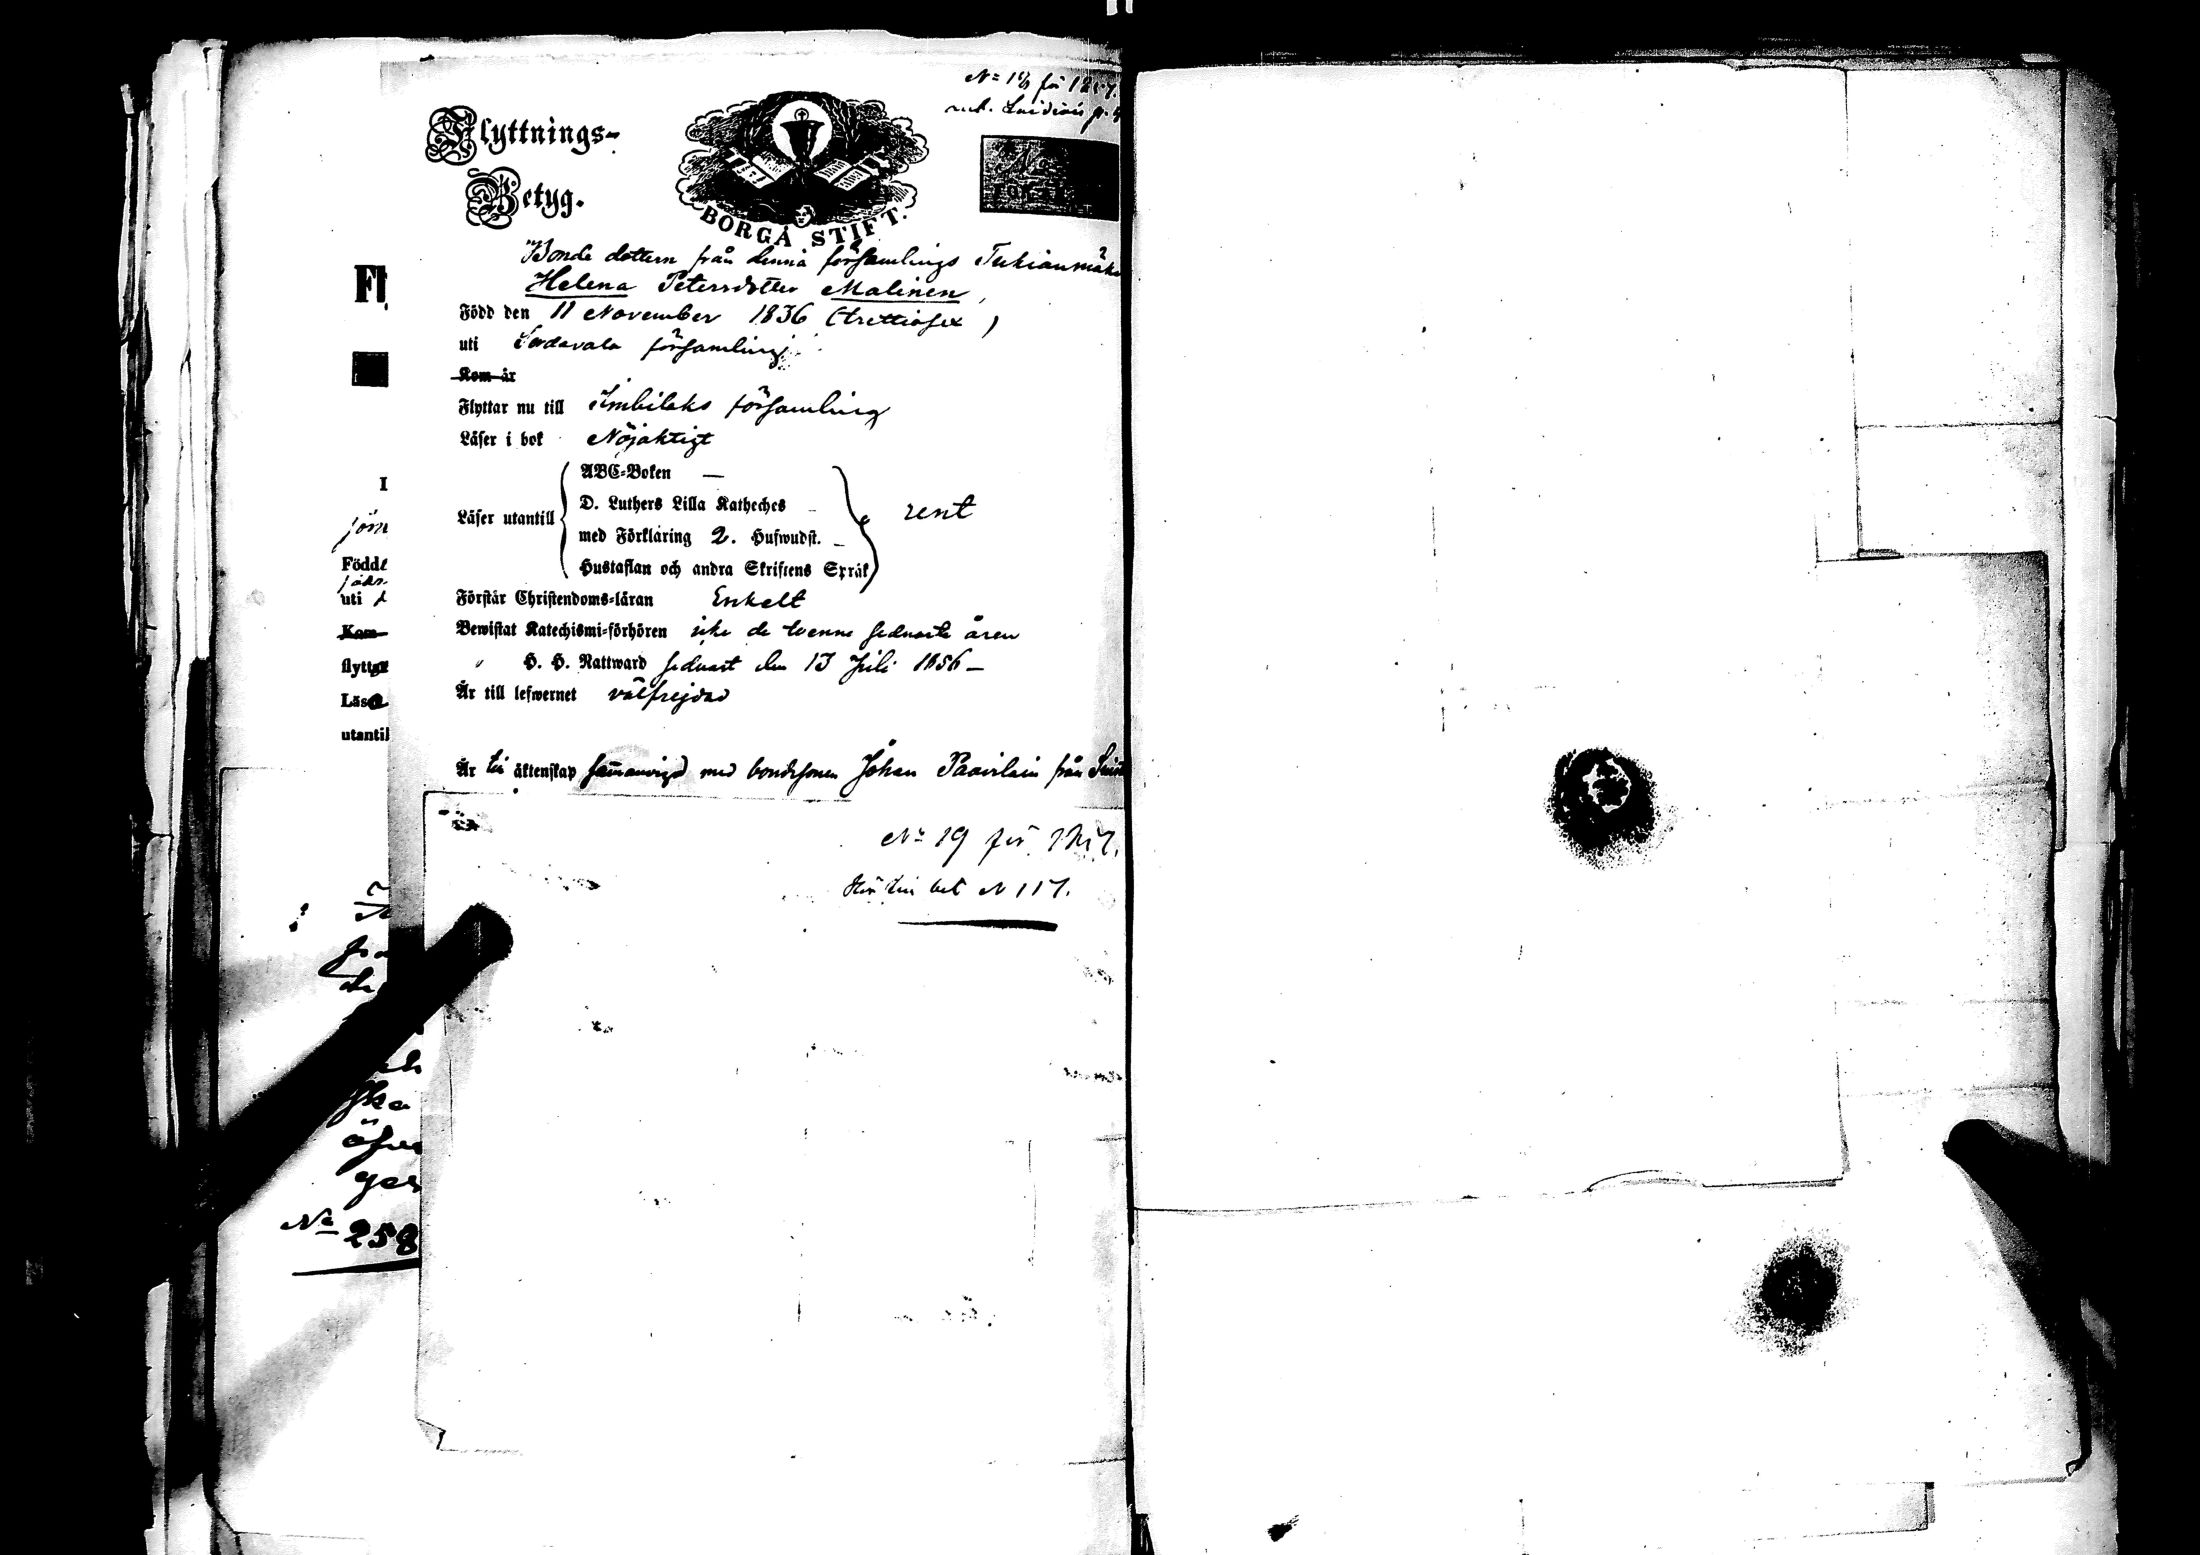 No 19 för 1857.
Flyttnings-
Betyg.
BORGÅ STIFT.
Bonde dottern från denna församlings
Helena Petersdotter Malinen,
Född den 11 November 1836 (trettiosex)
uti Sordavala församling
Kom år
Flyttar nu till Imbilaks församling
Läser i bok Nöjaktigt
ABC-Boken —
D. Luthers Lilla Katheches
Läser utantill rent
med Förklaring 2. Hufwudst.
Hustaflan och andra Skriftens Språk
Förstår Christendoms-läran Enkelt
Bewistat Katechismi-förhören icke de tvenne sednaste åren
" H. H. Nattward sednast den 13 Juli 1856 —
Är till lefwernet välfrejdad
Är till äktenskap sammanvigd med bondesonen Johan Paavilain från
No 19 för 1857.
bet N 117.
Fl
I
Född
uti
Kom
flyttar
Läser
utantil
No 258